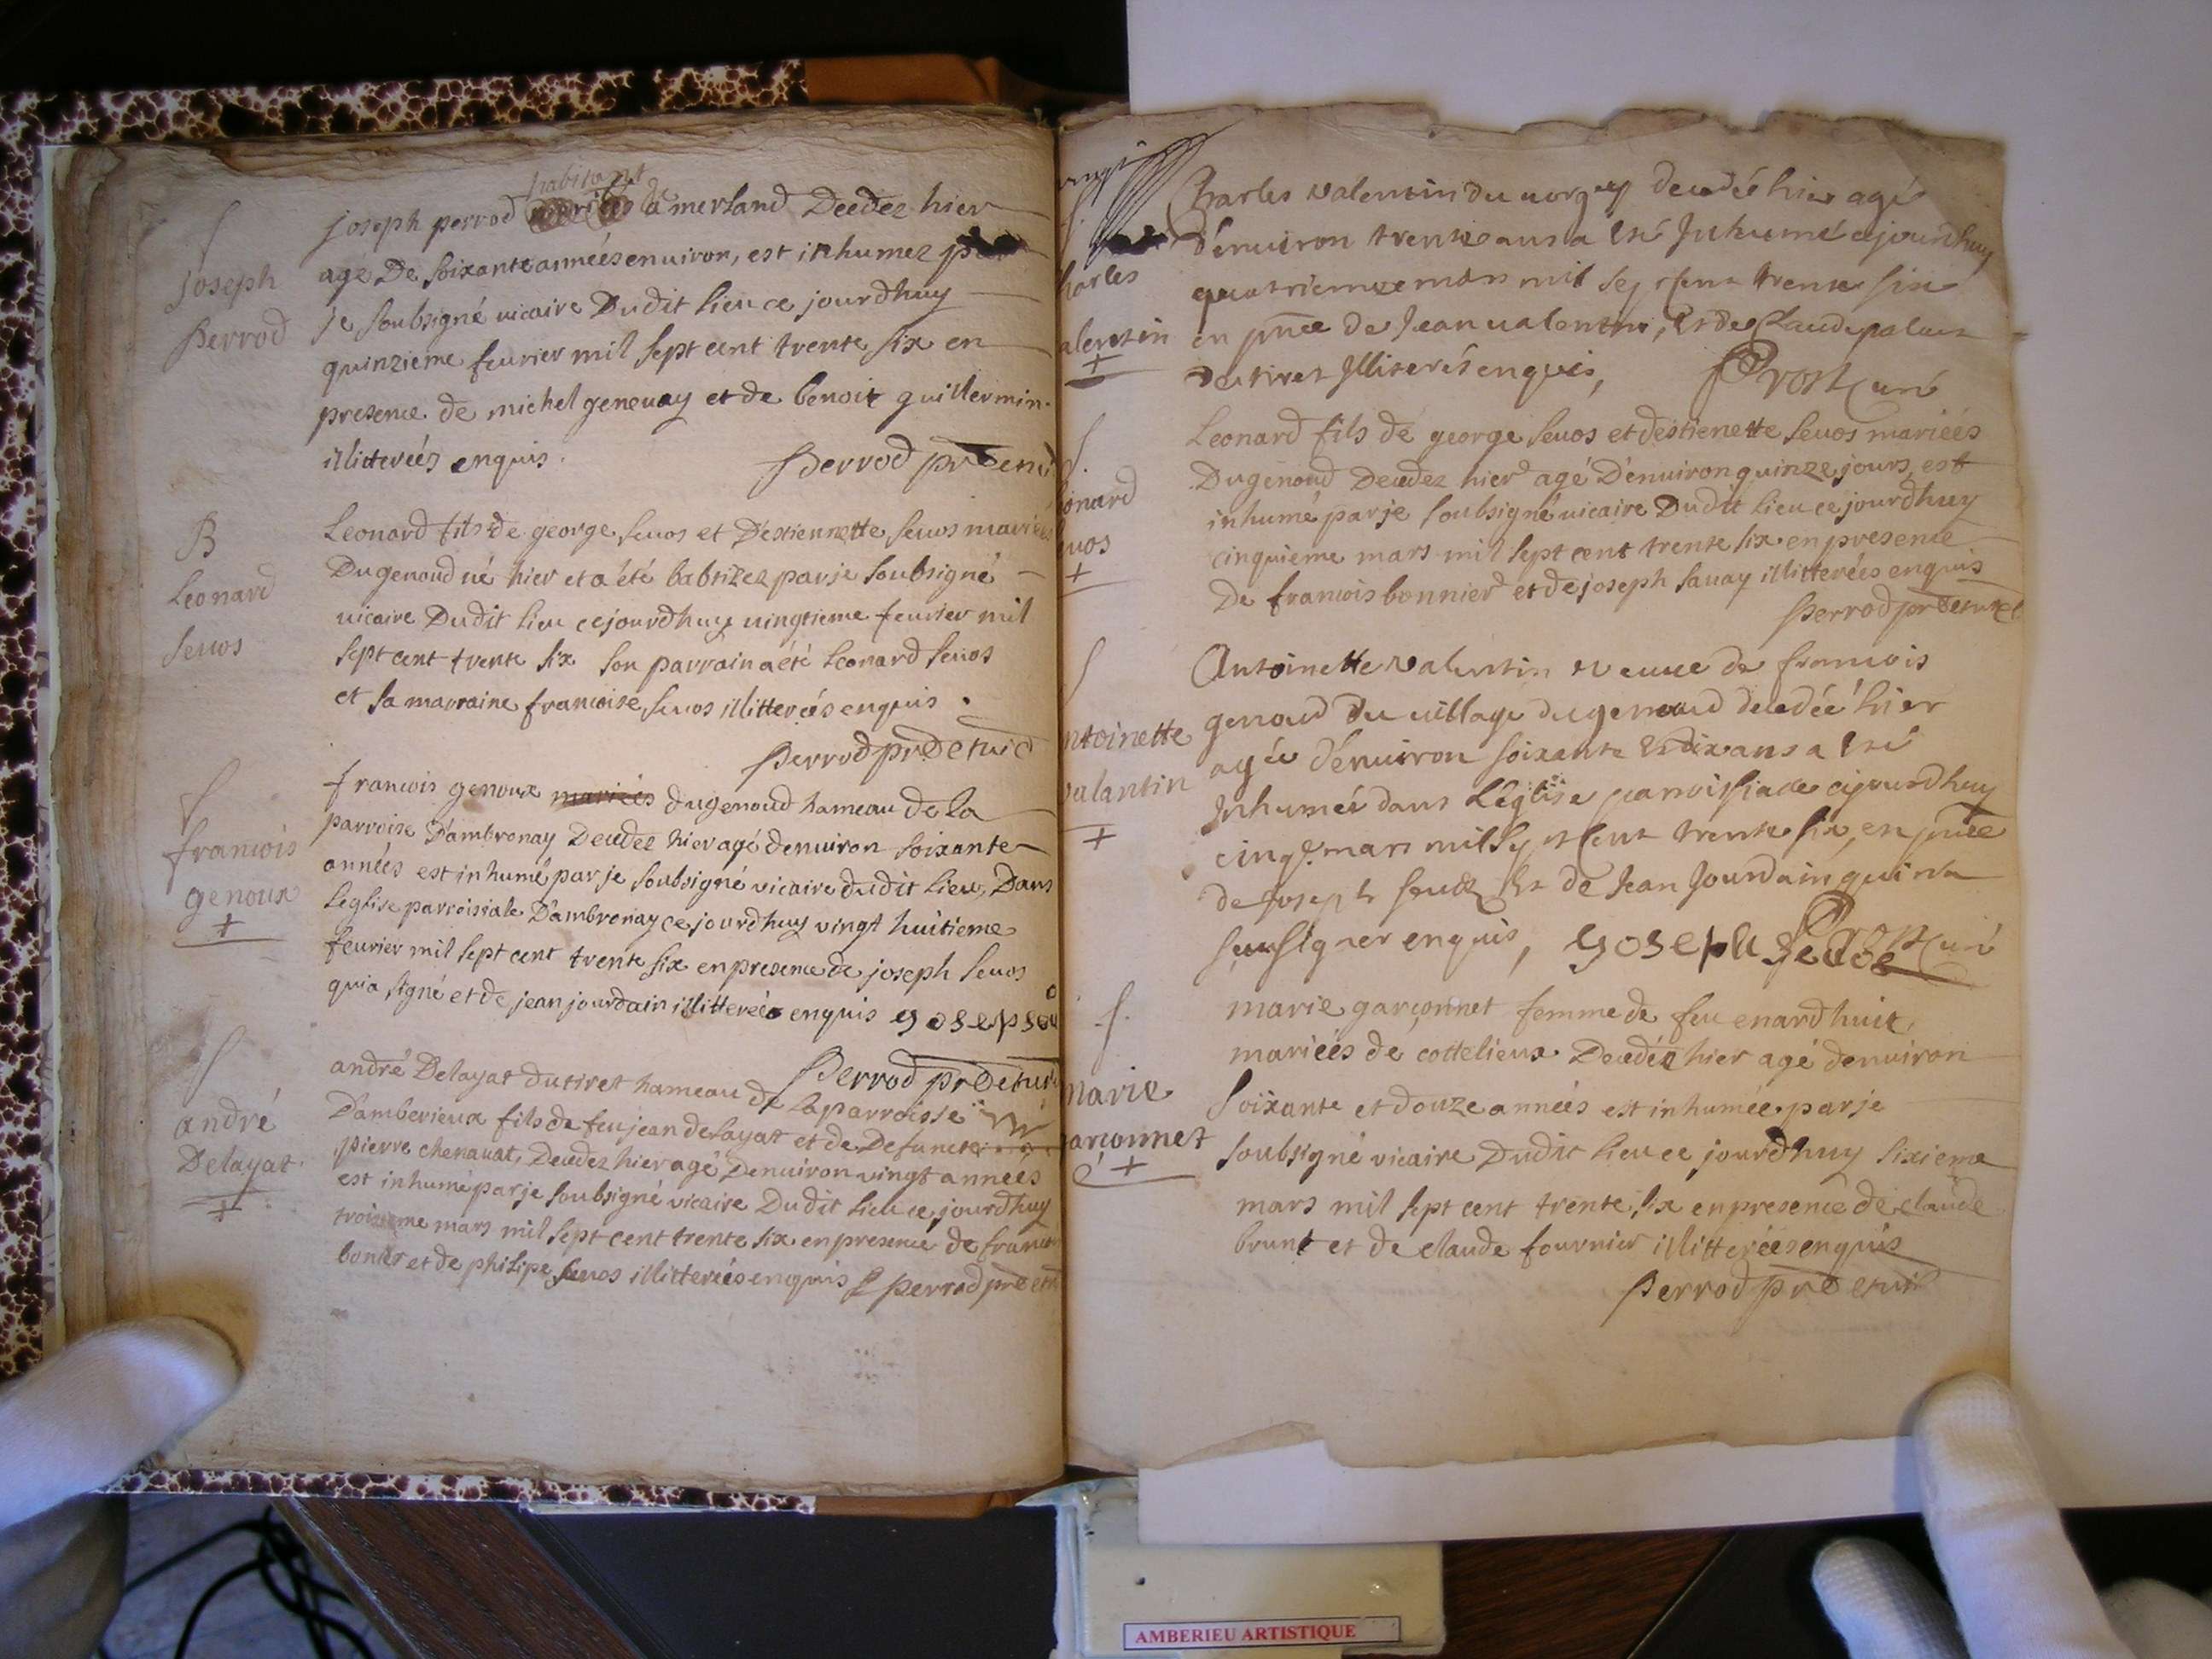 habitant
joseph perrod de a merland Decedez hier
agé De soixante années enuiron, est inhumez par
je soubsigné uicaire Dudit lieu ce jourdhuy
quinzieme feurier mil sept cent trente six en
presence de michel geneuay et de benoit guillermin.
illitterées enquis. perrod pre et ui
S
joseph
perrod
Leonard fils de george seuos et D'estiennette seuos mariées
Dugenoud né hier et a été babtizez par je soubsigné
uicaire Dudit lieu cejourdhuy uingtieme feurier mil
sept cent trente six son parrain a été Leonard seuos
et sa marraine francoise seuos illitterées enquis.
perrod pre et uic
B
Leonard
seuos
francois genoux mariées dugenoud hameau de la
parroise D'ambronay Decedez hier agé denuiron soixante
années est inhumé par je soubsigné vicaire dudit lieu, Dans
Leglise parroissiale D'ambronay ce jourdhuy vingt huitieme
feurier mil sept cent trente six en presence de joseph seuos
qui a signé et de jean jourdain illitterées enquis
perrod pre et ui
S
francois
genoux
+
andré Delayat du tiret hameau de la parroisse
D'amberieux fils de feu jean delayat et de Defuncte
pierre chenauat, Decedez hier agé Denuiron vingt années
est inhumé par je soubsigné vicaire Dudit lieu ce jourdhuy
troisieme mars mil sept cent trente six en presence de francois
bonier et de philipe seuos illitterées enquis perrod pre et
S
andré
Delayat
+
Charles valentin du decedé hier agé
d'enuiron trente ans a esté Inhumé cejourdhuy
quatriemze mars mil sept cent trente six
en pnce de Jean ualentin, et de Claude
du tiret Illiterés enquis, Prost curé
S
harles
alentin
+
Leonard fils de george seuos et d'estienette seuos mariées
Dugenoud Decedez hier agé D'enuiron quinze jours, est
inhumé par je soubsigné uicaire Dudit lieu ce jourdhuy
cinquieme mars mil sept cent trente six en presence
De francois bonnier et de joseph sauay illitterées enquis
perrod pre et uic
S.
onard
uos
+
Antoinette valentin veuue de francois
genoud du uillage dugenoud decedéé hier
agéé d'enuiron soixante et dix ans a esté
Inhumée dans L'église parroissialle cejourdhuy
cinqe. mars mil sept cent trente six, en pnce
de Joseph et de Jean Jourdain qui n'a
sceu signer enquis, Prost curé
S
ntoinette
valantin
+
marie garçonnet femme de feu enard huit,
mariéés de cottelieux Decedéz hier agé denuiron
soixante et douze années est inhumée par je
soubsigné vicaire Dudit lieu ce jourdhuy sixieme
mars mil sept cent trente six en presence de claude
brunt et de claude fournier illitterées enquis
perrod pre et uic
S.
marie
arconnet
+
AMBERIEU ARTISTIQUE